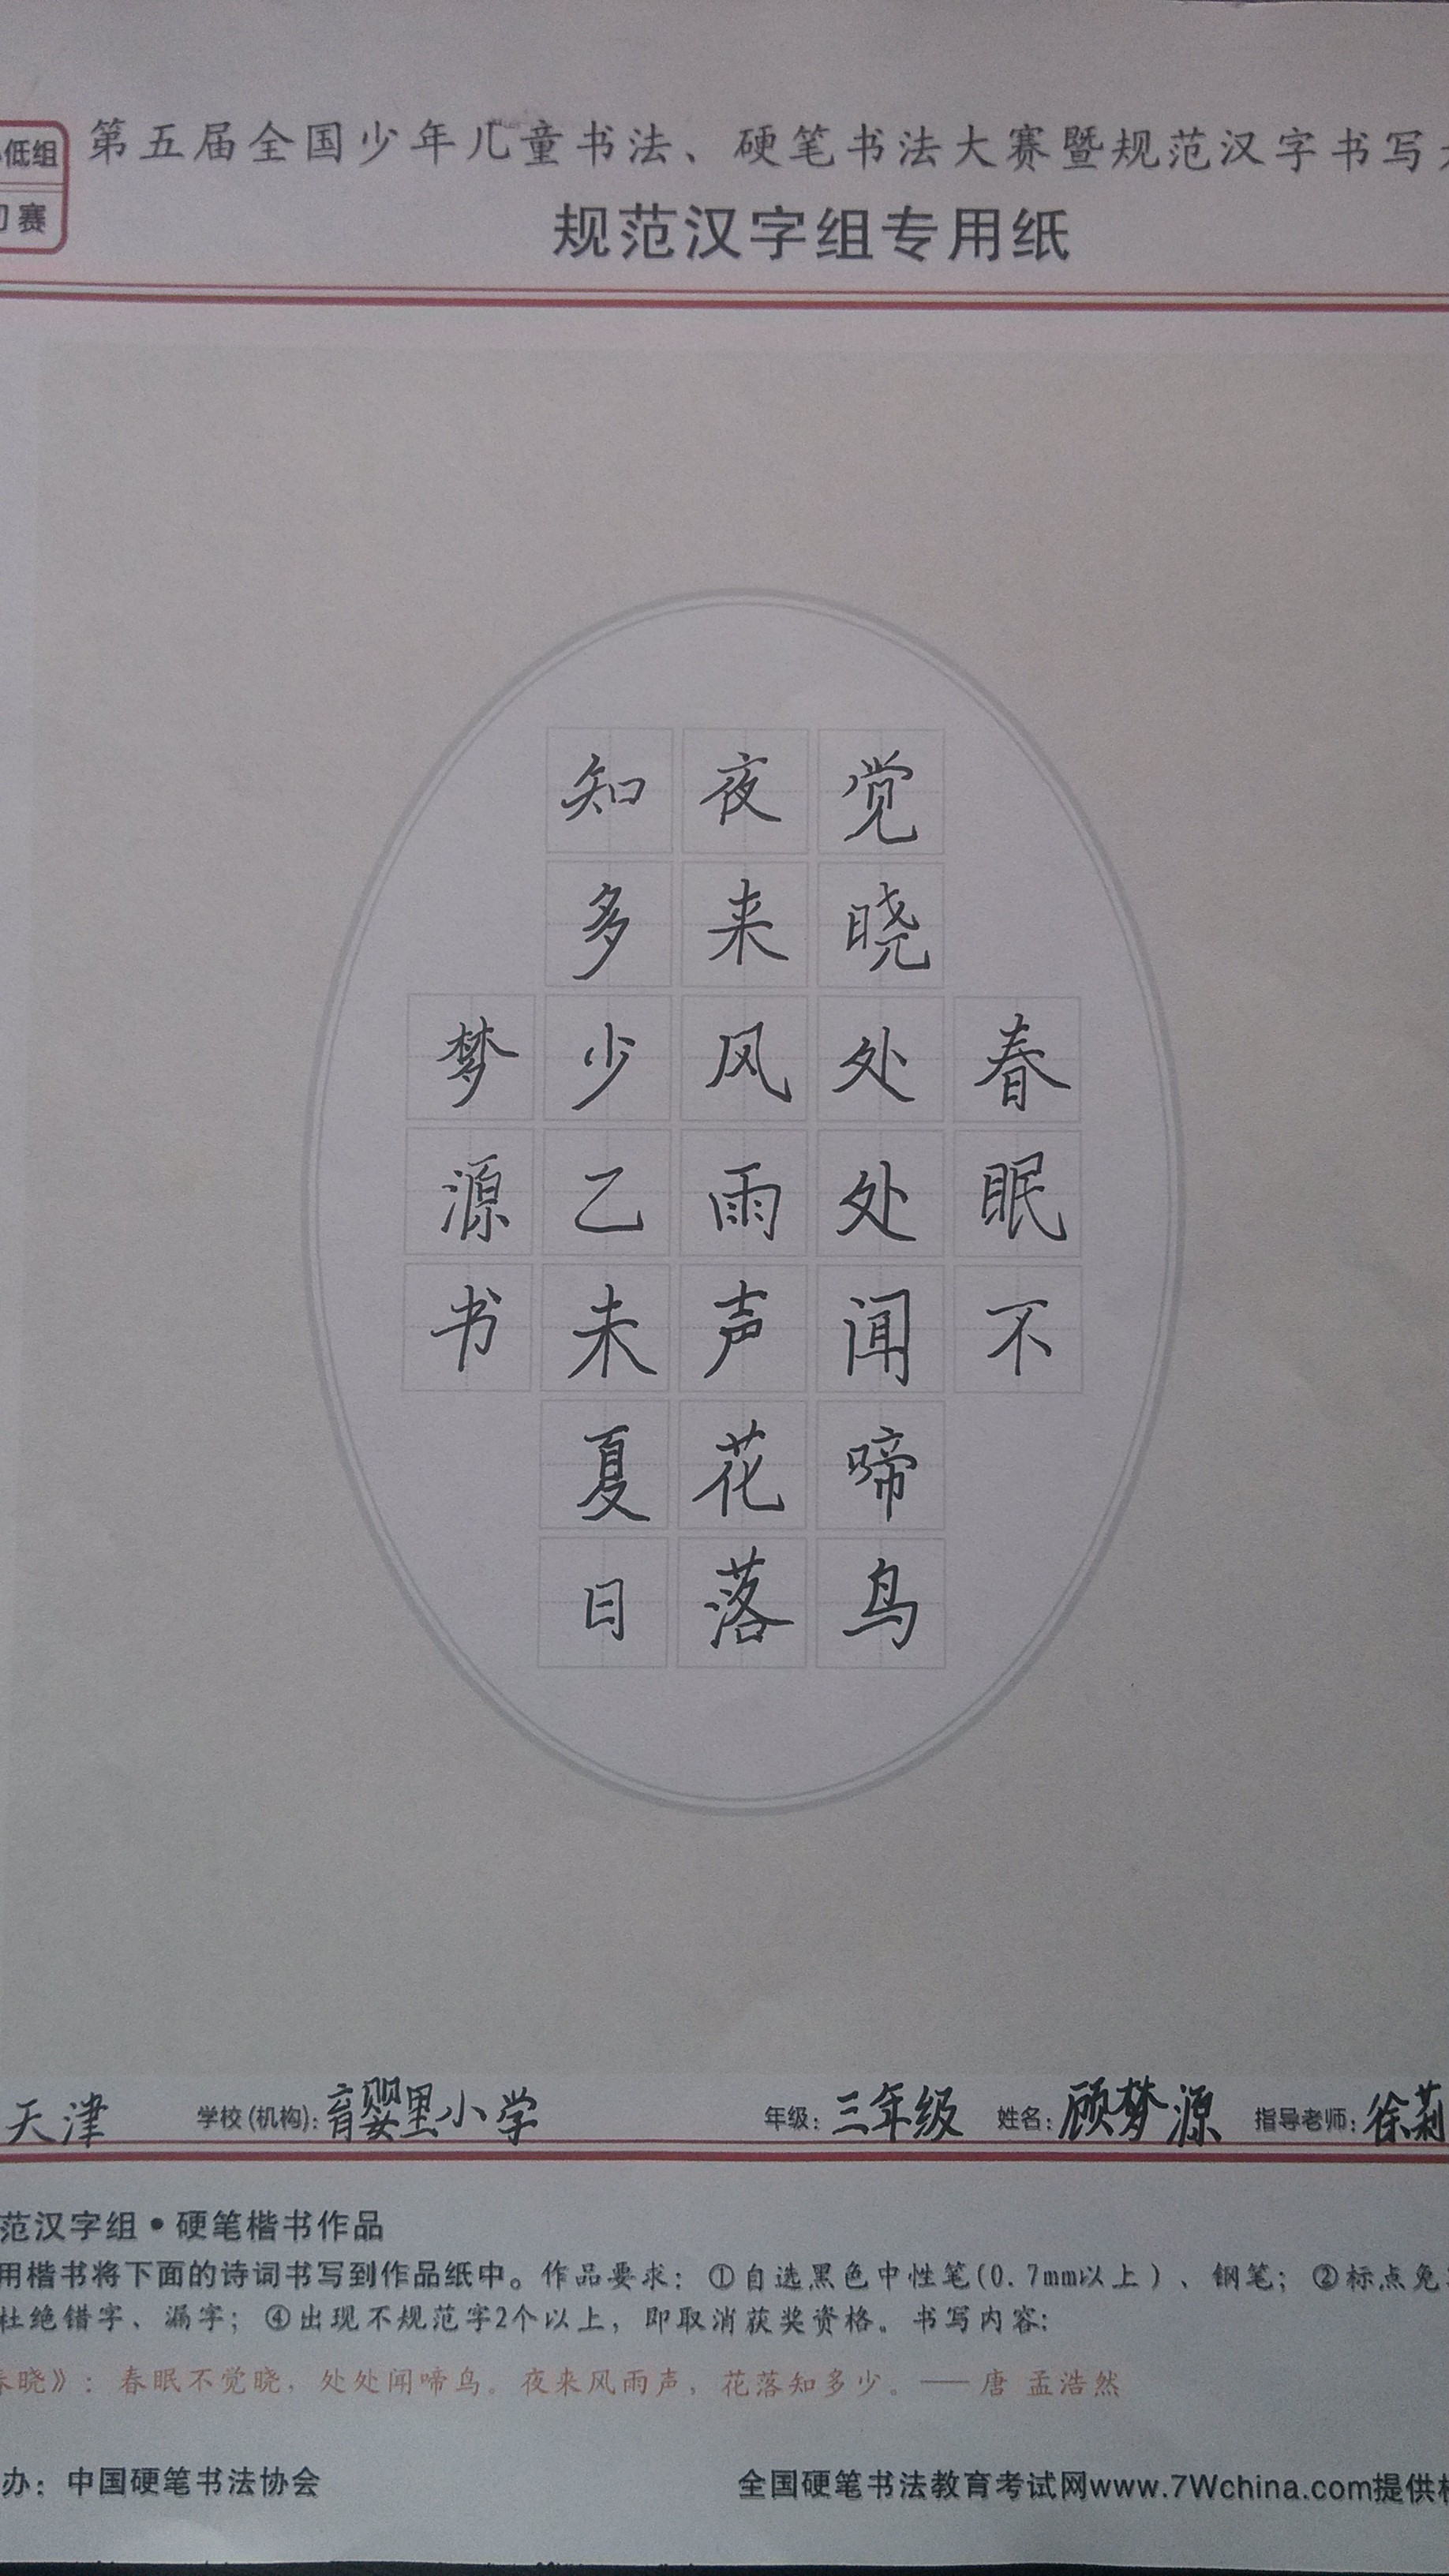 低组
赛
第五届全国少年儿童书法、硬笔书法大赛暨规范汉字书写
规范汉字组专用纸
春眠不
觉晓处处闻啼鸟
夜来风雨声花落
知多少乙未夏日
梦源书
天津 学校(机构):育婴里小学 年级:三年级 姓名:顾梦源 指导老师:徐莉
范汉字组•硬笔楷书作品
用楷书将下面的诗词书写到作品纸中。作品要求:①自选黑色中性笔(0.7mm以上)、钢笔;②标点免
杜绝错字、漏字;④出现不规范字2个以上,即取消获奖资格。书写内容:
晓》:春眠不觉晓,处处闻啼鸟。夜来风雨声,花落知多少。——唐 孟浩然
办:中国硬笔书法协会 全国硬笔书法教育考试网www.7Wchina.com提供